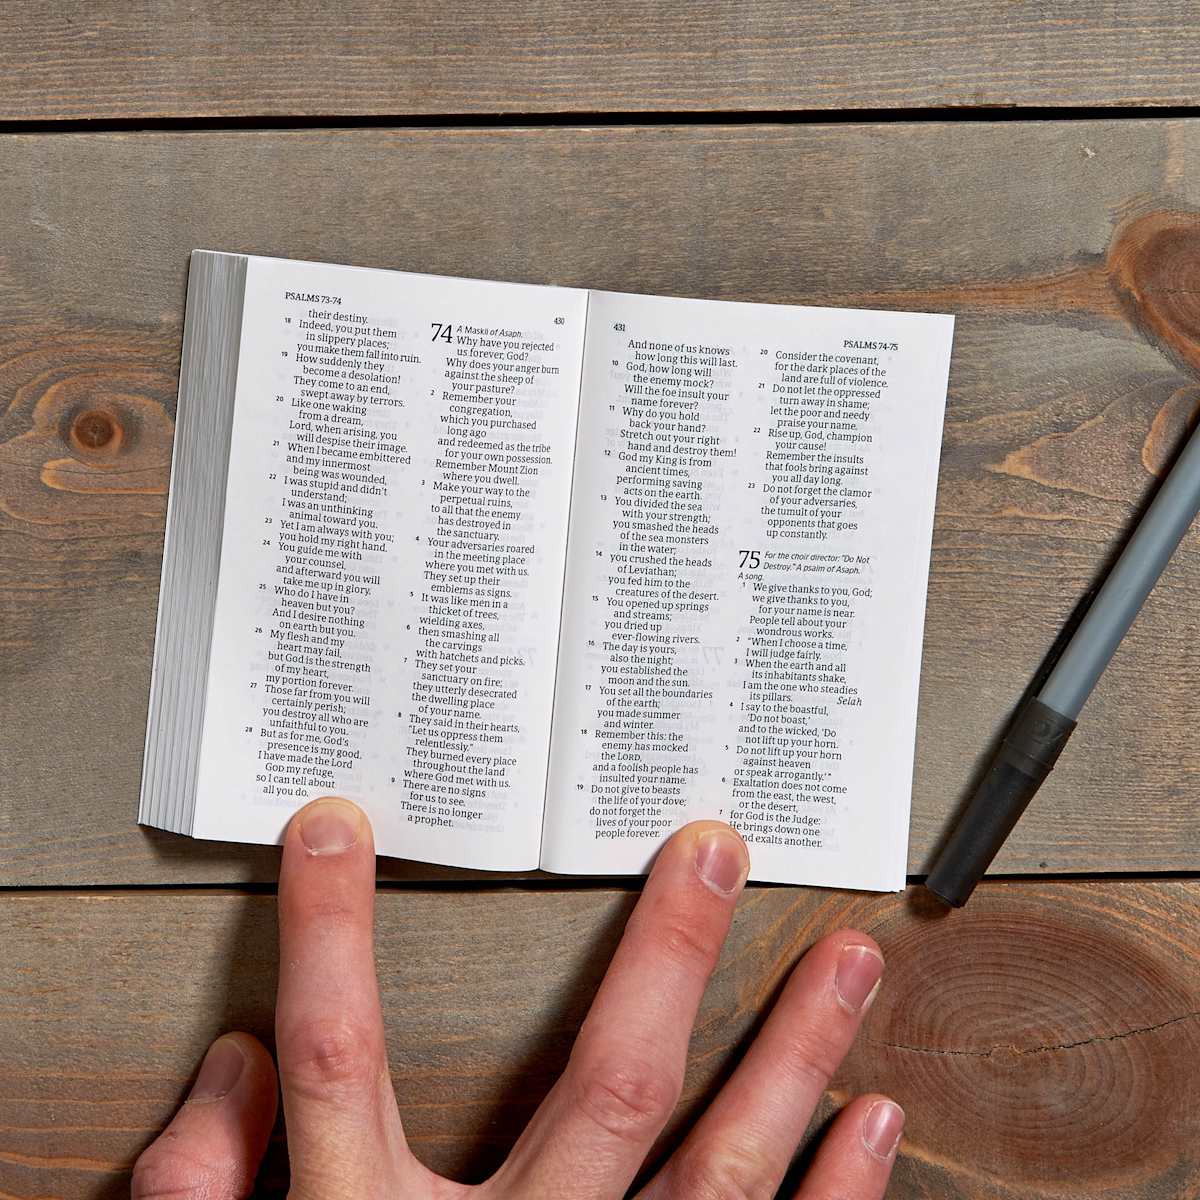 PSALMS 73-74
their destiny.
18 Indeed, you put them
in slippery places;
you make them fall into ruin.
19 How suddenly they
become a desolation!
They come to an end,
swept away by terrors.
20 Like one waking
from a dream,
Lord, when arising, you
will despise their image.
21 When I became embittered
and my innermost
being was wounded,
22 I was stupid and didn't
understand;
I was an unthinking
animal toward you.
23 Yet I am always with you;
you hold my right hand.
24 You guide me with
your counsel,
and afterward you will
take me up in glory.
25 Who do I have in
heaven but you?
And I desire nothing
on earth but you.
26 My flesh and my
heart may fail,
but God is the strength
of my heart,
my portion forever.
27 Those far from you will
certainly perish;
you destroy all who are
unfaithful to you.
28 But as for me, God's
presence is my good.
I have made the Lord
GOD my refuge,
so I can tell about
all you do.
430
74 A Maskil of Asaph.
Why have you rejected
us forever, God?
Why does your anger burn
against the sheep of
your pasture?
2 Remember your
congregation,
which you purchased
long ago
and redeemed as the tribe
for your own possession.
Remember Mount Zion
where you dwell.
3 Make your way to the
perpetual ruins,
to all that the enemy
has destroyed in
the sanctuary.
4 Your adversaries roared
in the meeting place
where you met with us.
They set up their
emblems as signs.
5 It was like men in a
thicket of trees,
wielding axes,
6 then smashing all
the carvings
with hatchets and picks.
7 They set your
sanctuary on fire;
they utterly desecrated
the dwelling place
of your name.
8 They said in their hearts,
"Let us oppress them
relentlessly."
They burned every place
throughout the land
where God met with us.
9 There are no signs
for us to see.
There is no longer
a prophet.
431
And none of us knows
how long this will last.
10 God, how long will
the enemy mock?
Will the foe insult your
name forever?
11 Why do you hold
back your hand?
Stretch out your right
hand and destroy them!
12 God my King is from
ancient times,
performing saving
acts on the earth.
13 You divided the sea
with your strength;
you smashed the heads
of the sea monsters
in the water;
14 you crushed the heads
of Leviathan;
you fed him to the
creatures of the desert.
15 You opened up springs
and streams;
you dried up
ever-flowing rivers.
16 The day is yours,
also the night;
you established the
moon and the sun.
17 You set all the boundaries
of the earth;
you made summer
and winter.
18 Remember this: the
enemy has mocked
the LORD,
and a foolish people has
insulted your name.
19 Do not give to beasts
the life of your dove;
do not forget the
lives of your poor
people forever.
PSALMS 74-75
20 Consider the covenant,
for the dark places of the
land are full of violence.
21 Do not let the oppressed
turn away in shame;
let the poor and needy
praise your name.
22 Rise up, God, champion
your cause!
Remember the insults
that fools bring against
you all day long.
23 Do not forget the clamor
of your adversaries,
the tumult of your
opponents that goes
up constantly.
75 For the choir director: "Do Not
Destroy." A psalm of Asaph.
A song.
1 We give thanks to you, God;
we give thanks to you,
for your name is near.
People tell about your
wondrous works.
2 "When I choose a time,
I will judge fairly.
3 When the earth and all
its inhabitants shake,
I am the one who steadies
its pillars. Selah
4 I say to the boastful,
'Do not boast,'
and to the wicked, 'Do
not lift up your horn.
5 Do not lift up your horn
against heaven
or speak arrogantly.'"
6 Exaltation does not come
from the east, the west,
or the desert,
7 for God is the Judge:
He brings down one
and exalts another.